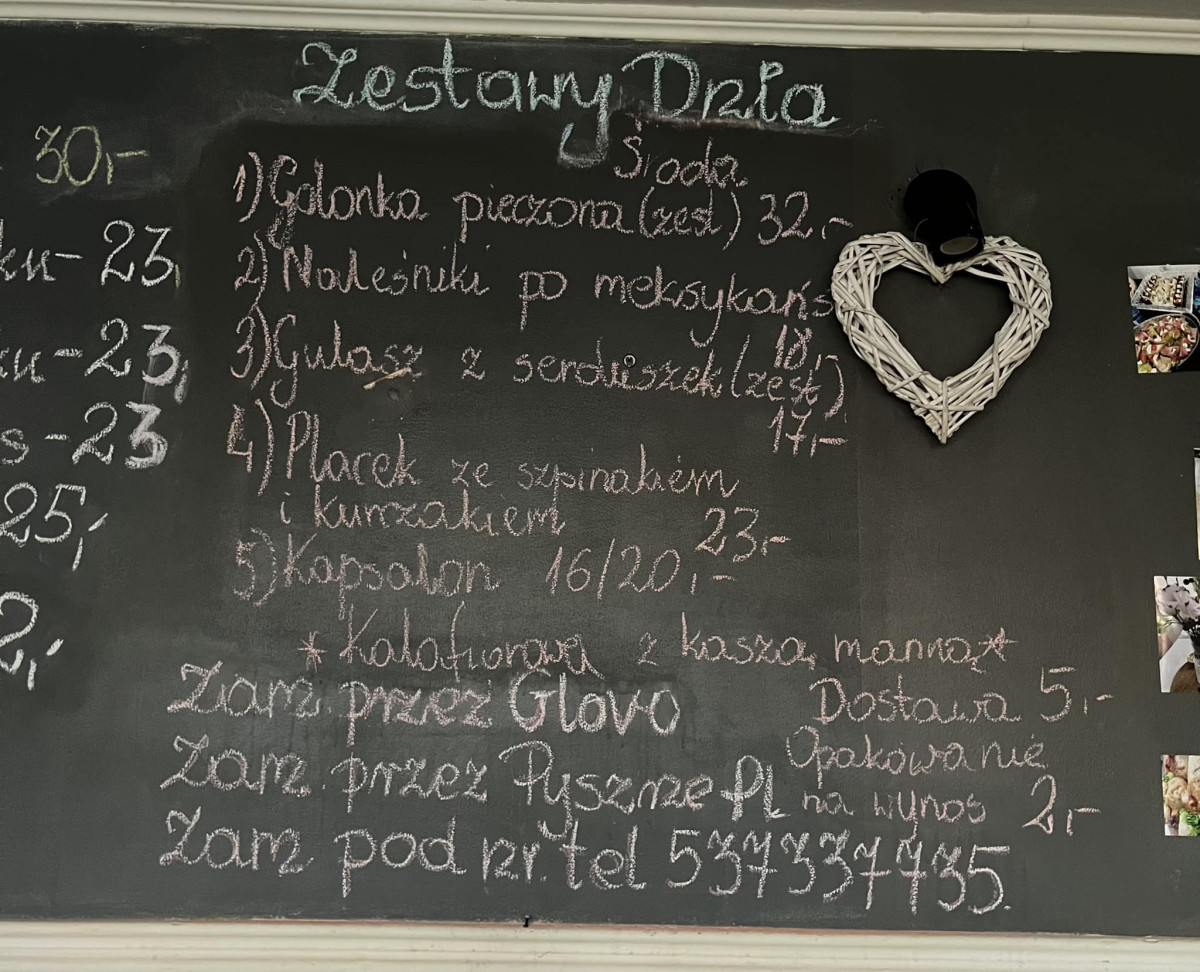 Zestawy Dnia
Środa
30,-
ku - 23,
ku - 23,
s - 23
25,-
2,-
1) Golonka pieczona (zest) 32,-
2) Naleśniki po meksykańs
18,-
3) Gulasz z serduszek (zest)
17,-
4) Placek ze szpinakiem
i kurczakiem 23,-
5) Kapsalon 16/20,-
* Kalafiorowa z kaszą manną *
Zam. przez Glovo
Dostawa 5,-
Zam. przez Pyszne PL
Opakowanie
na wynos 2,-
Zam pod nr. tel 537337735.